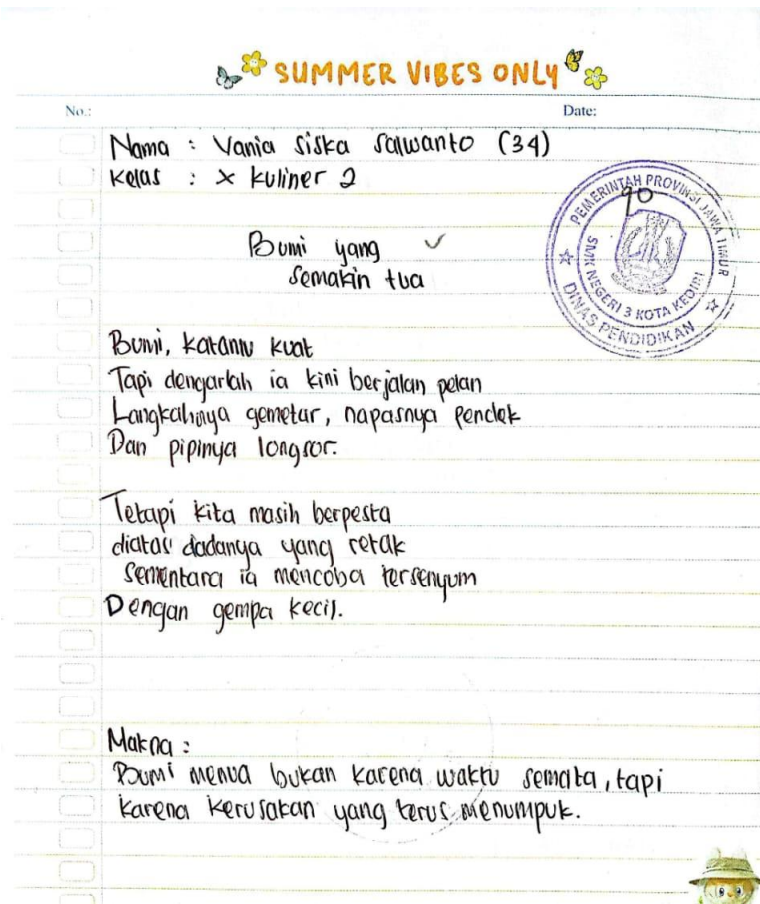 SUMMER VIBES ONLY
No.:
Date:
Nama : Vania Siska Salwanto (34)
Kelas : X Kuliner 2
90
PEMERINTAH PROVINSI JAWA TIMUR
SMK NEGERI 3 KOTA KEDIRI
DINAS PENDIDIKAN
Bumi yang
Semakin tua
Bumi, katamu kuat
Tapi dengarlah ia kini berjalan pelan
Langkahnya gemetar, napasnya pendek
Dan pipinya longsor.
Tetapi kita masih berpesta
diatas dadanya yang retak
Sementara ia mencoba tersenyum
Dengan gempa kecil.
Makna :
Bumi menua bukan karena waktu semata, tapi
karena kerusakan yang terus menumpuk.